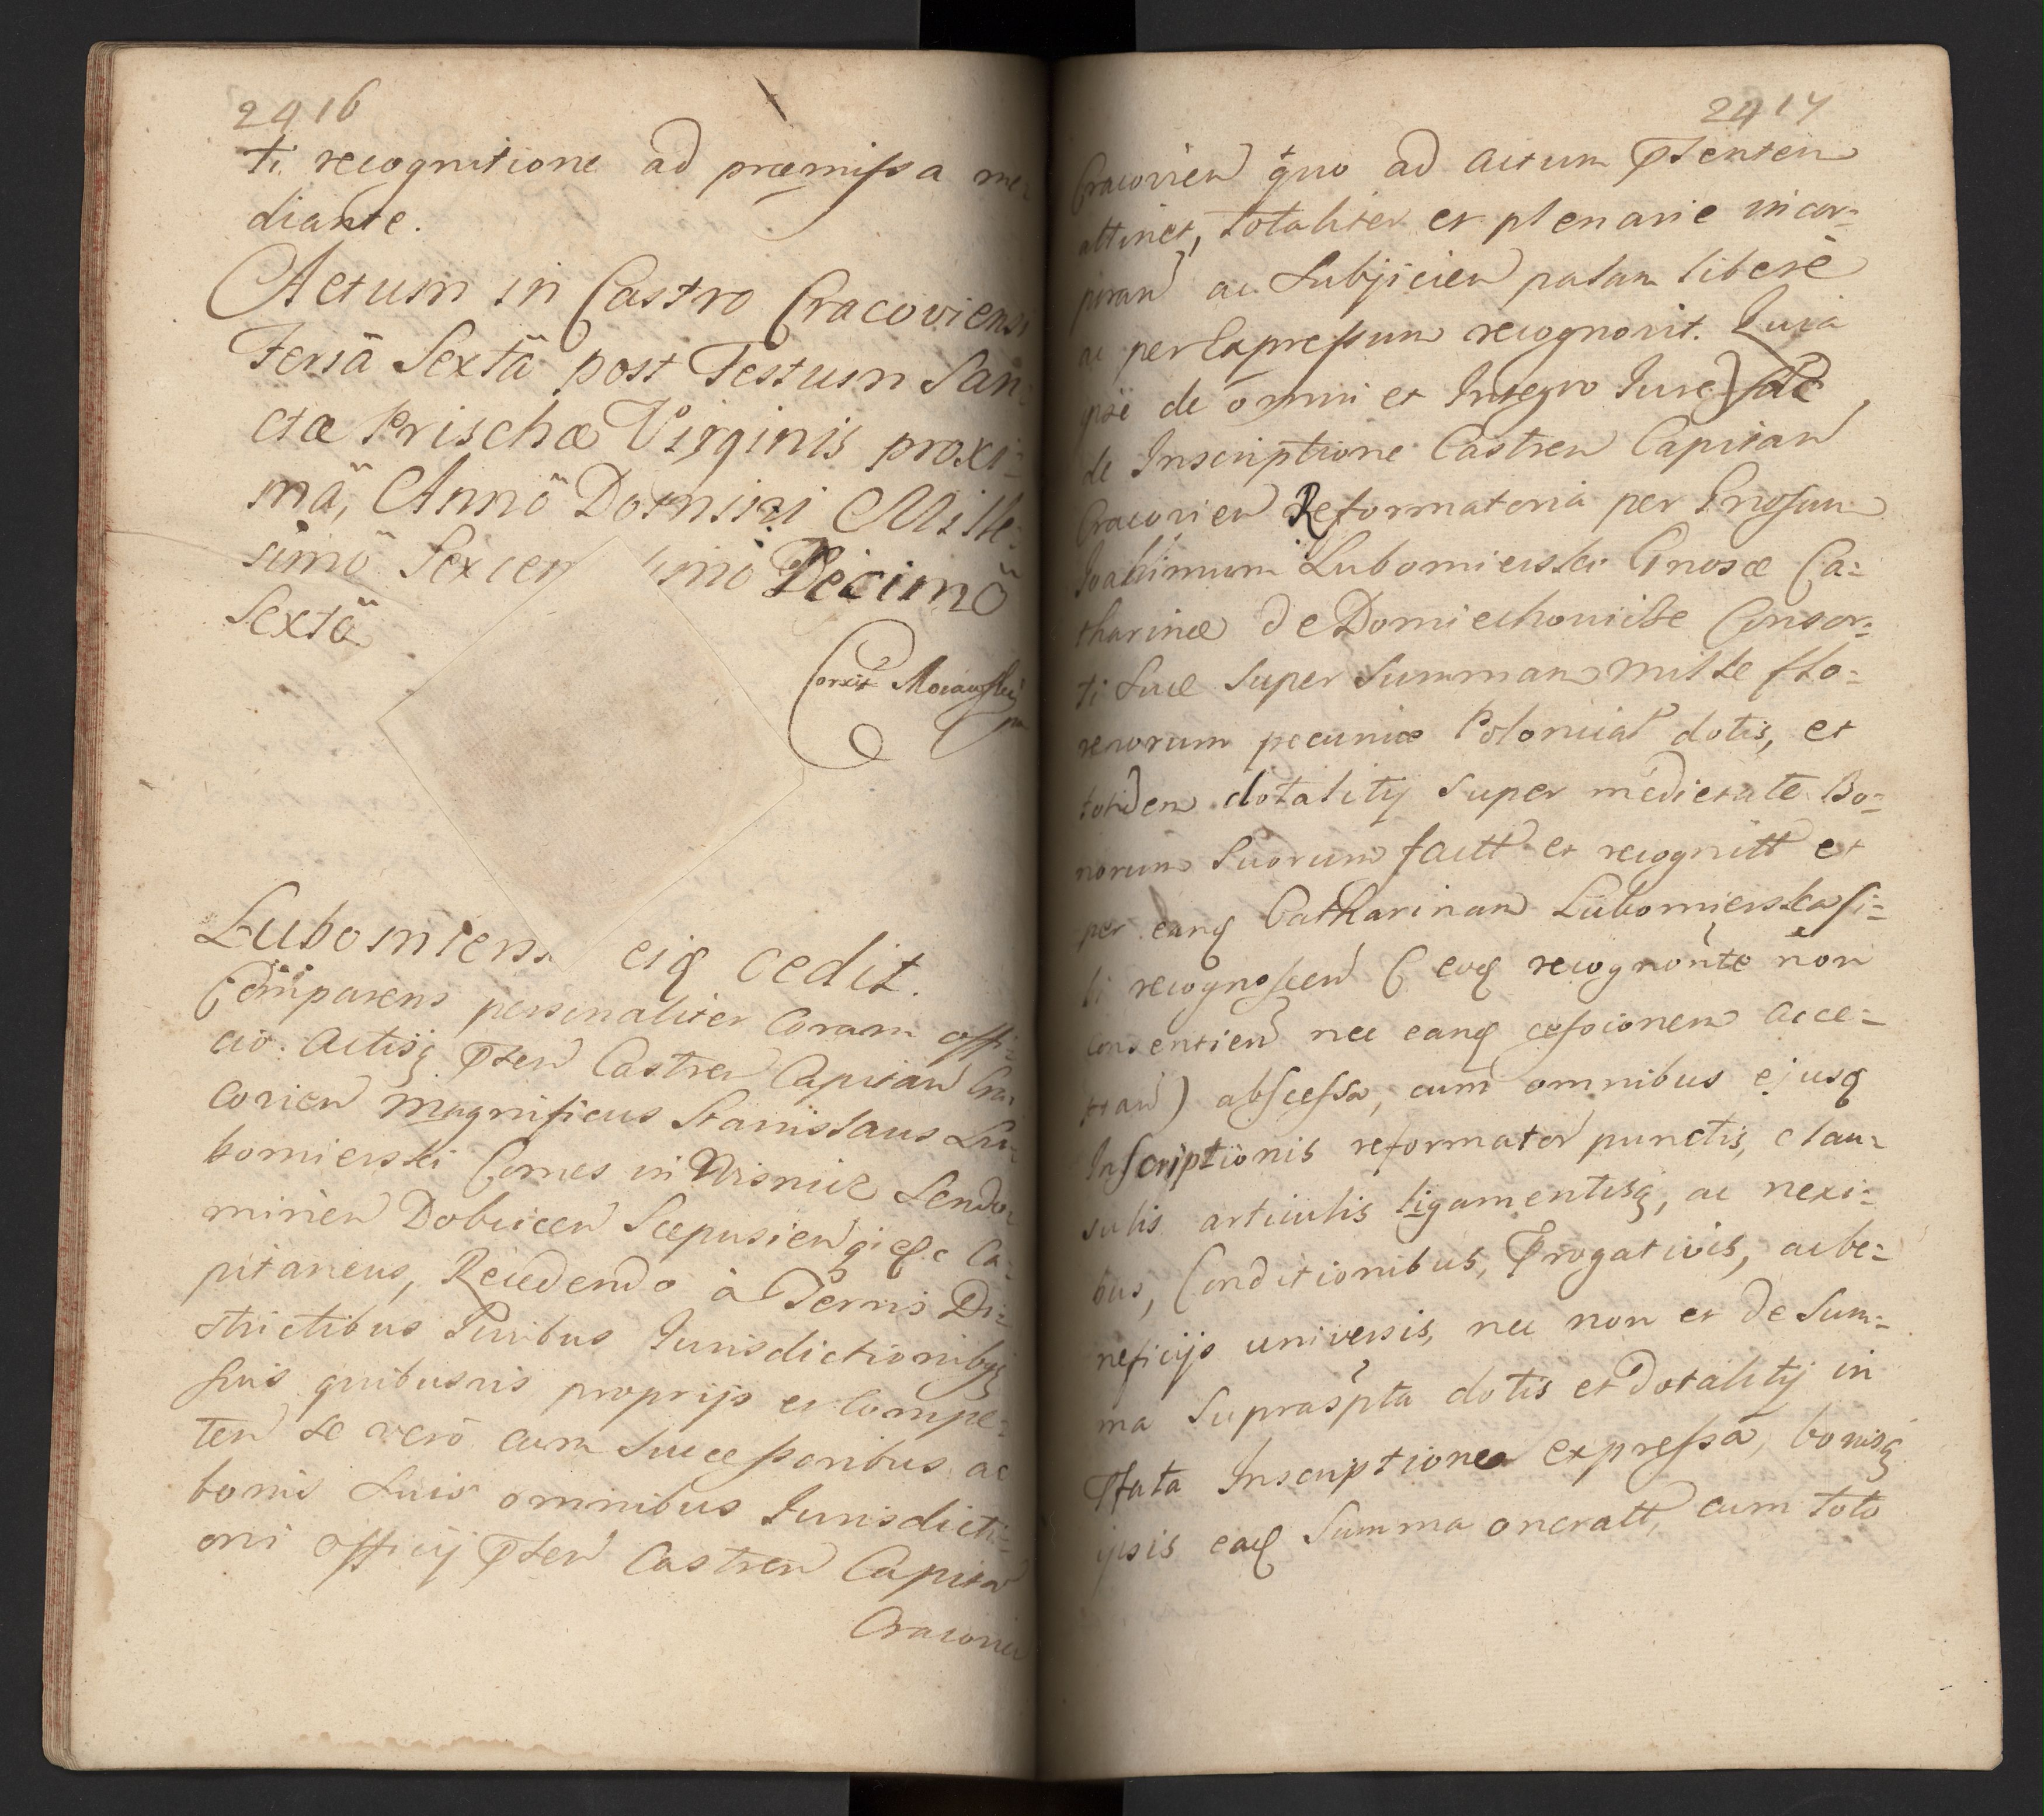 2416
ti recognitione ad præmissa me
diante.
Actum in Castro Cracoviensi
Feriâ Sextâ post Festum San:
ctæ Prischæ Virginis proxi:
mâ, Annô Domini Mille:
simô Sexcen imo Decimô
Sextô
Corxit Morawski
Lubomiersk eidq cedit.
Comparens personaliter coram offi:
cio Actisq Pten Castren Capitan Cra:
covien Magnificus Stanislaus Lu:
bomierski Comes in Wisnicz Sendo:
mirien Dobcicen Scepusien qz etc Ca:
pitaneus, Recedendo à Terris Di:
strictibus Juribus Jurisdictionibqz
suis quibusvis proprijs et Compe:
ten se verò cum successoribus ac
bonis suis omnibus Jurisdicti:
oni officij Pten Castren Capitan
Cracovien
2417
Cracovien quo ad actum Ptenten
attinet, totaliter et plenarie incor:
poran ac Subjicien palam liberè
ac per Expressum recognovit. Quia
ipse de omni et Integro Jure
de Inscriptione Castren Capitan
Cracovien Reformatoria per Gnosum
Joachimum Lubomierski Gnosæ Ca:
tharinæ de Domiechowicze Consor:
ti suæ super summam mille flo:
renorum pecuniæ Polonical dotis, et
totidem dotalitij super medietate Bo:
norum suorum factt et recognitt et
per eandq Catharinam Lubomierska si:
bi recognoscen ( eodq recognonte non
consentien nec eandq cessionem acce:
ptan) abscessa, cum omnibus ejusdq
Inscriptionis reformator punctis, clau:
sulis articulis ligamentisq, ac nexi:
bus, Conditionibus, Prrogativis, ac be:
neficijs universis, nec non et de Sum:
ma suprascpta dotis et Dotalitij in
Pfata Inscriptione expressa, bonisq
ipsis eadq Summa oneratt, cum toto